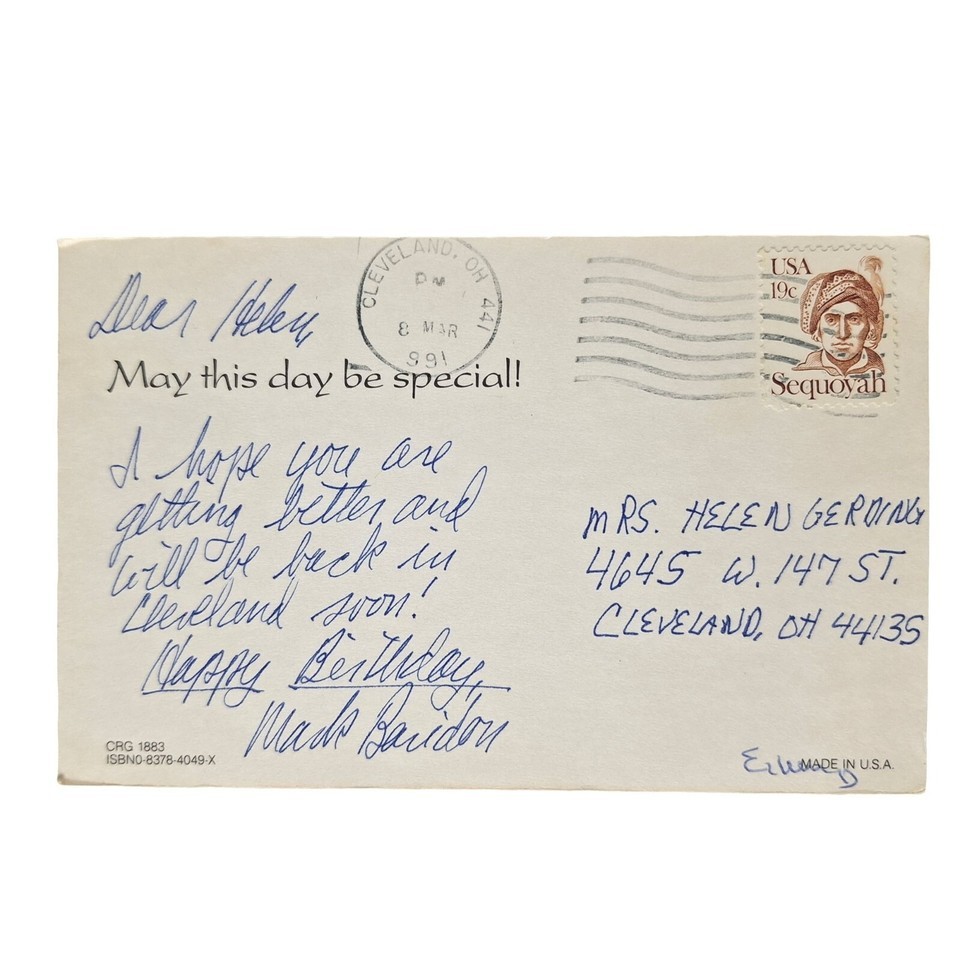 CLEVELAND, OH 441
PM
8 MAR
991
USA
19c
Sequoyah
Dear Helen,
May this day be special!
I hope you are
getting better and
will be back in
Cleveland soon!
Happy Birthday,
Mark Baridon
MRS. HELEN GERDING
4645 W. 147 ST.
CLEVELAND, OH 44135
CRG 1883
ISBN0-8378-4049-X
MADE IN U.S.A.